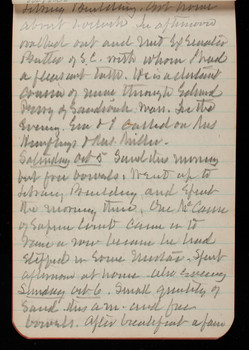 Library Building. Got home
about twelve. In afternoon
walked out and met Ex Senator
Butler of S.C. with whom I had
a pleasant talk. He is a distant
cousin of mine through
Perry of Sandwich Mass. In the
evening Em & I called on Mrs
Humphrys & Mrs Miller.
Saturday Oct 5 this morning
but free bowels. Went up to
Library Building and spent
the morning there. Gen McCawe
of Supreme Court came in to
in a row because he had
slipped in some Spent
afternoon at home also evening
Sunday Oct 6. Small quantity of
Sand this a.m. and free
bowels. After breakfast again